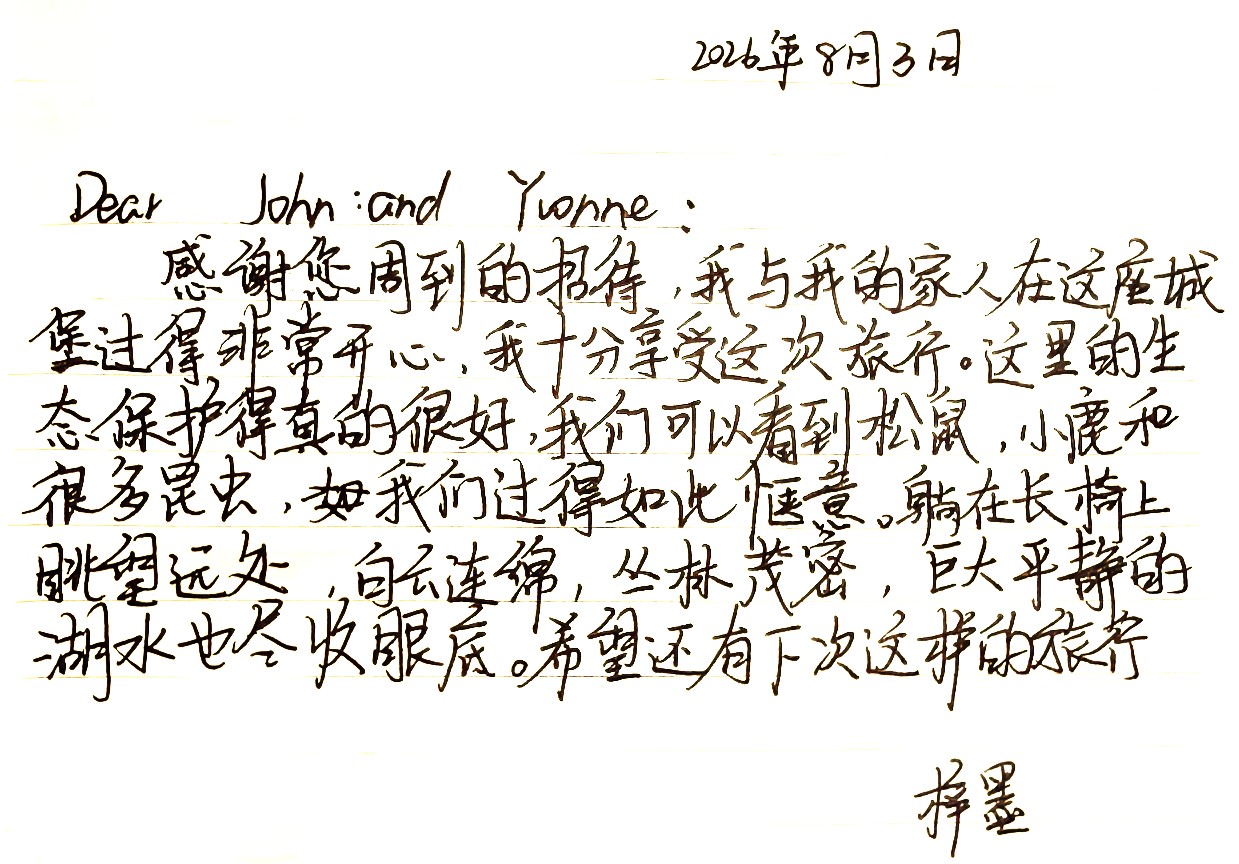 2026年8月3日
Dear John and Yvonne:
感谢您周到的招待,我与我的家人在这座城
堡过得非常开心,我十分享受这次旅行。这里的生
态保护得真的很好,我们可以看到松鼠,小鹿和
很多昆虫,我们过得如此惬意。躺在长椅上
眺望远处,白云连绵,丛林茂密,巨大平静的
湖水也尽收眼底。希望还有下次这样的旅行
梓墨